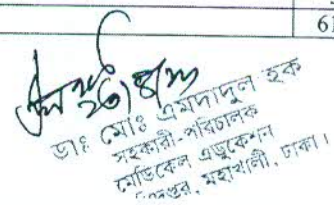 ২৩/৪/২৩
ডাঃ মোঃ এমদাদুল হক
সহকারী-পরিচালক
মেডিকেল এডুকেশন
মহাখালী, ঢাকা।